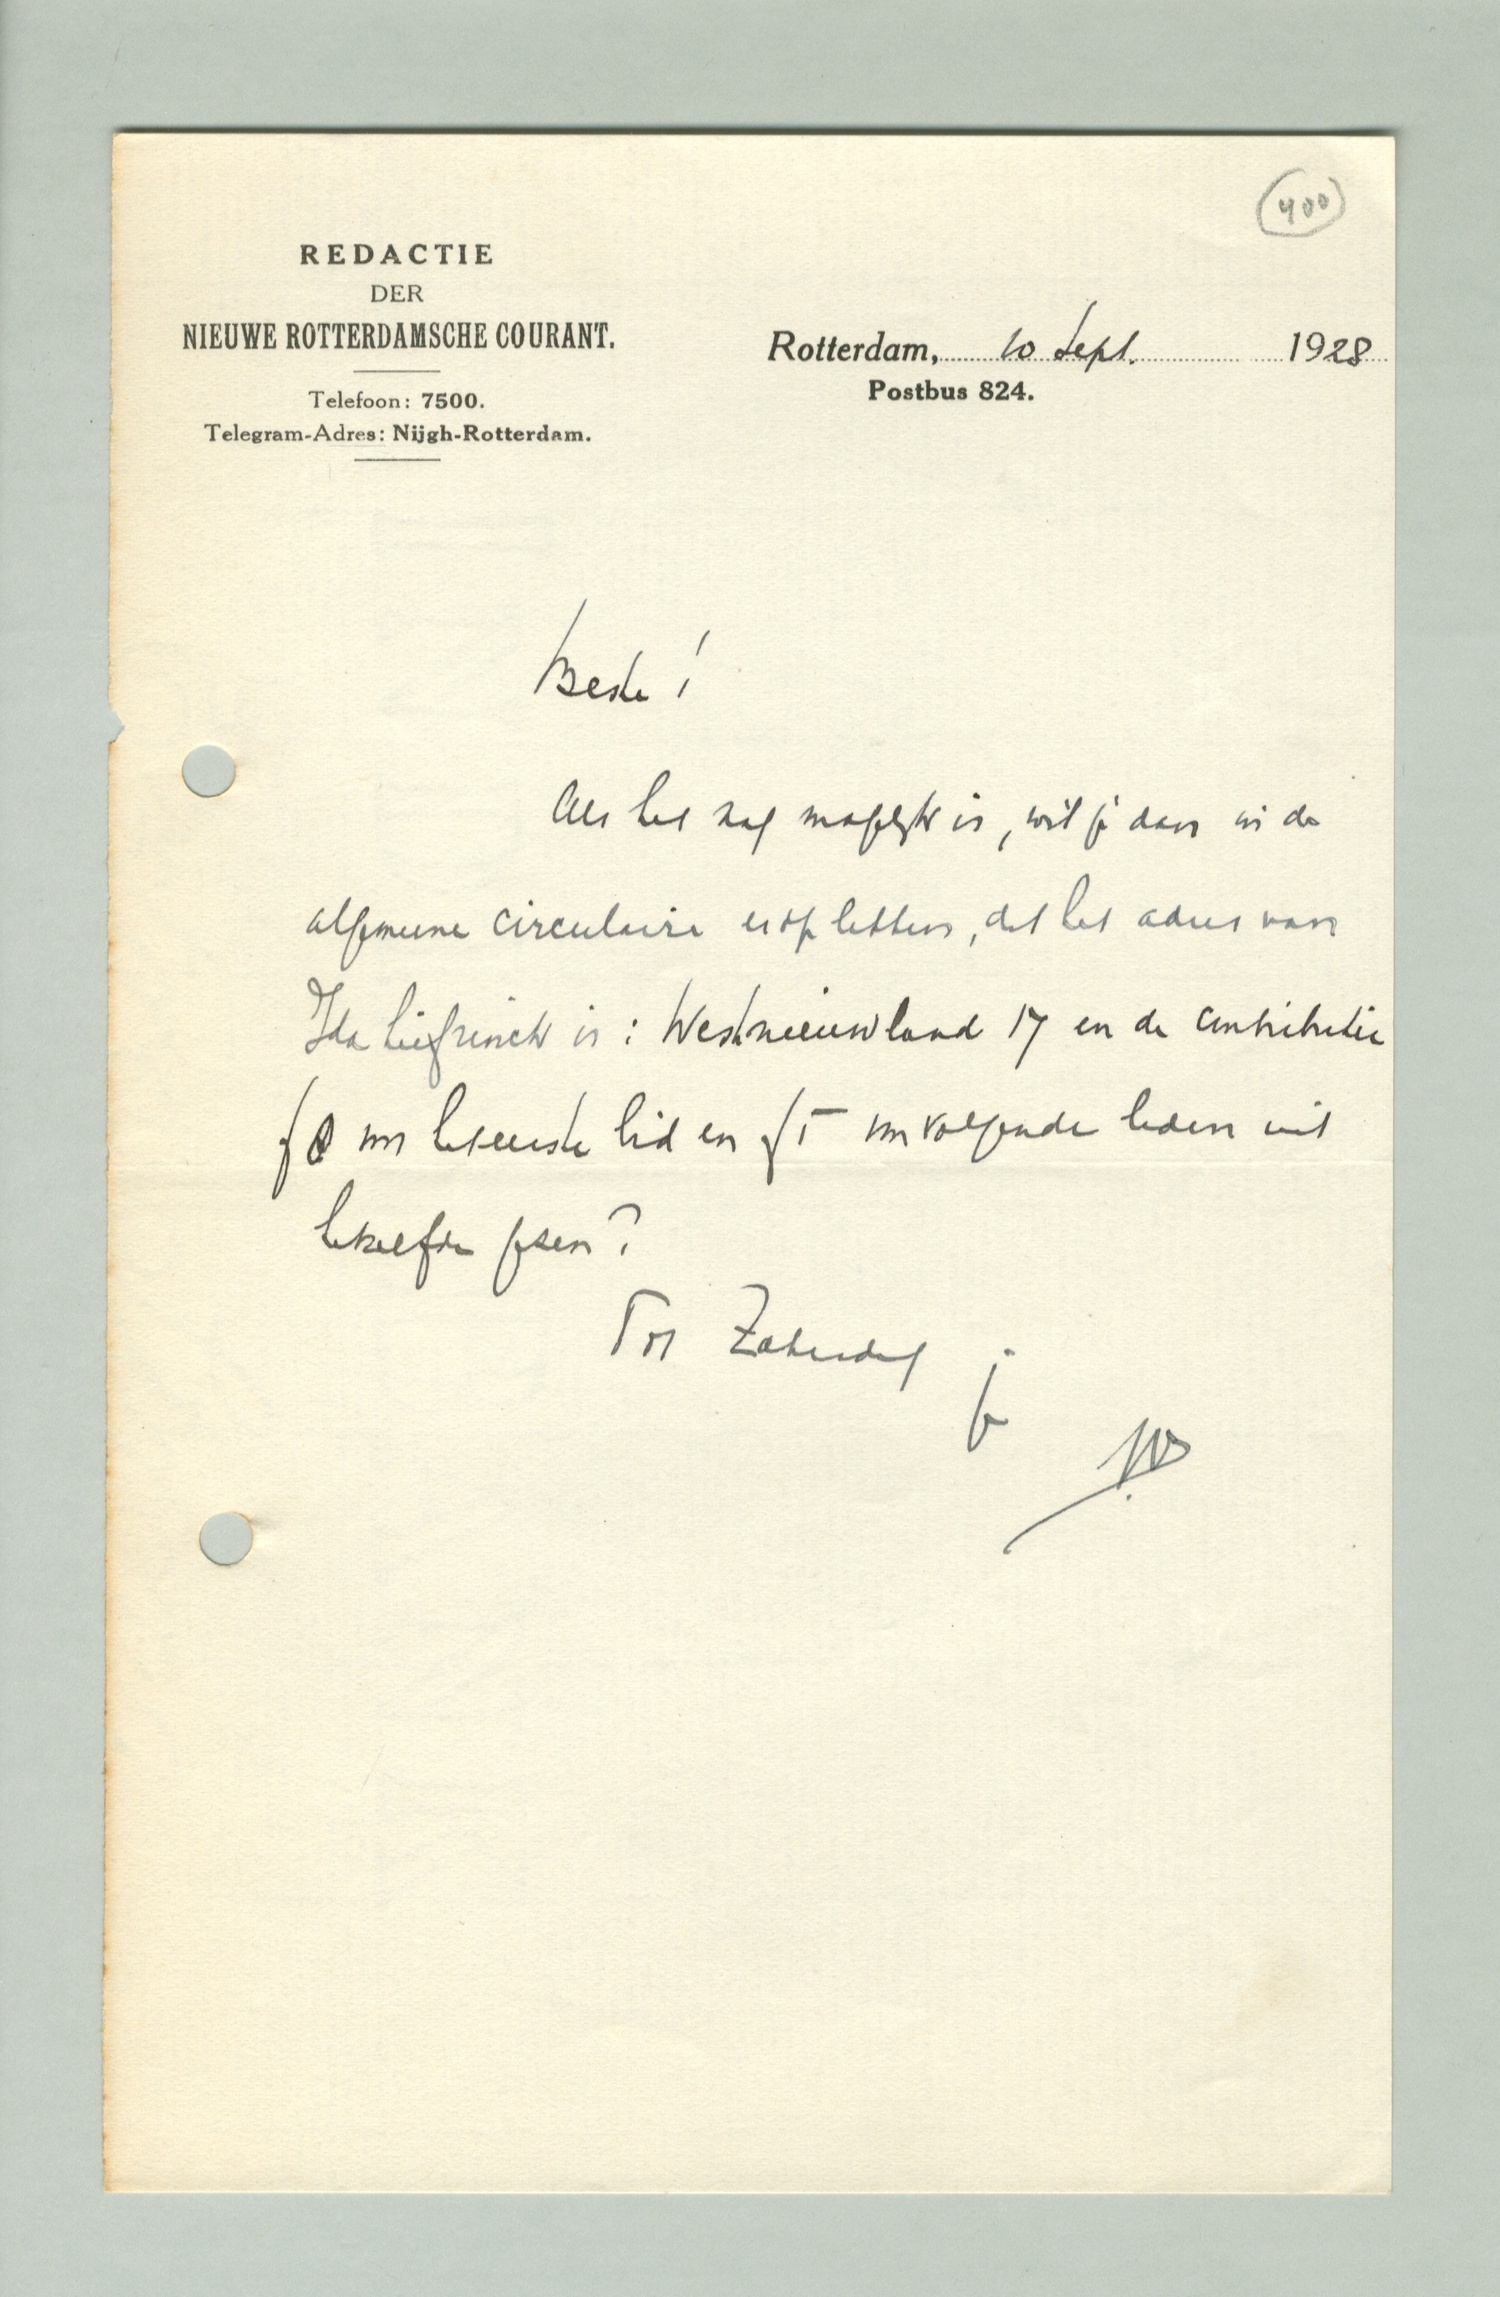 400
REDACTIE
DER
NIEUWE ROTTERDAMSCHE COURANT.
Telefoon: 7500.
Telegram-Adres: Nijgh-Rotterdam.
Rotterdam, 10 Sept. 1928
Postbus 824.
Beste!
Als het nog mogelijk is, wil je dan in de
algemeene circulaire erop letten, dat het adres van
Ida Liefrinck is: Westnieuwland 17 en de contributie
f 8 voor het eerste lid en f 5 voor volgende leden uit
hetzelfde gezin?
Tot Zaterdag
je